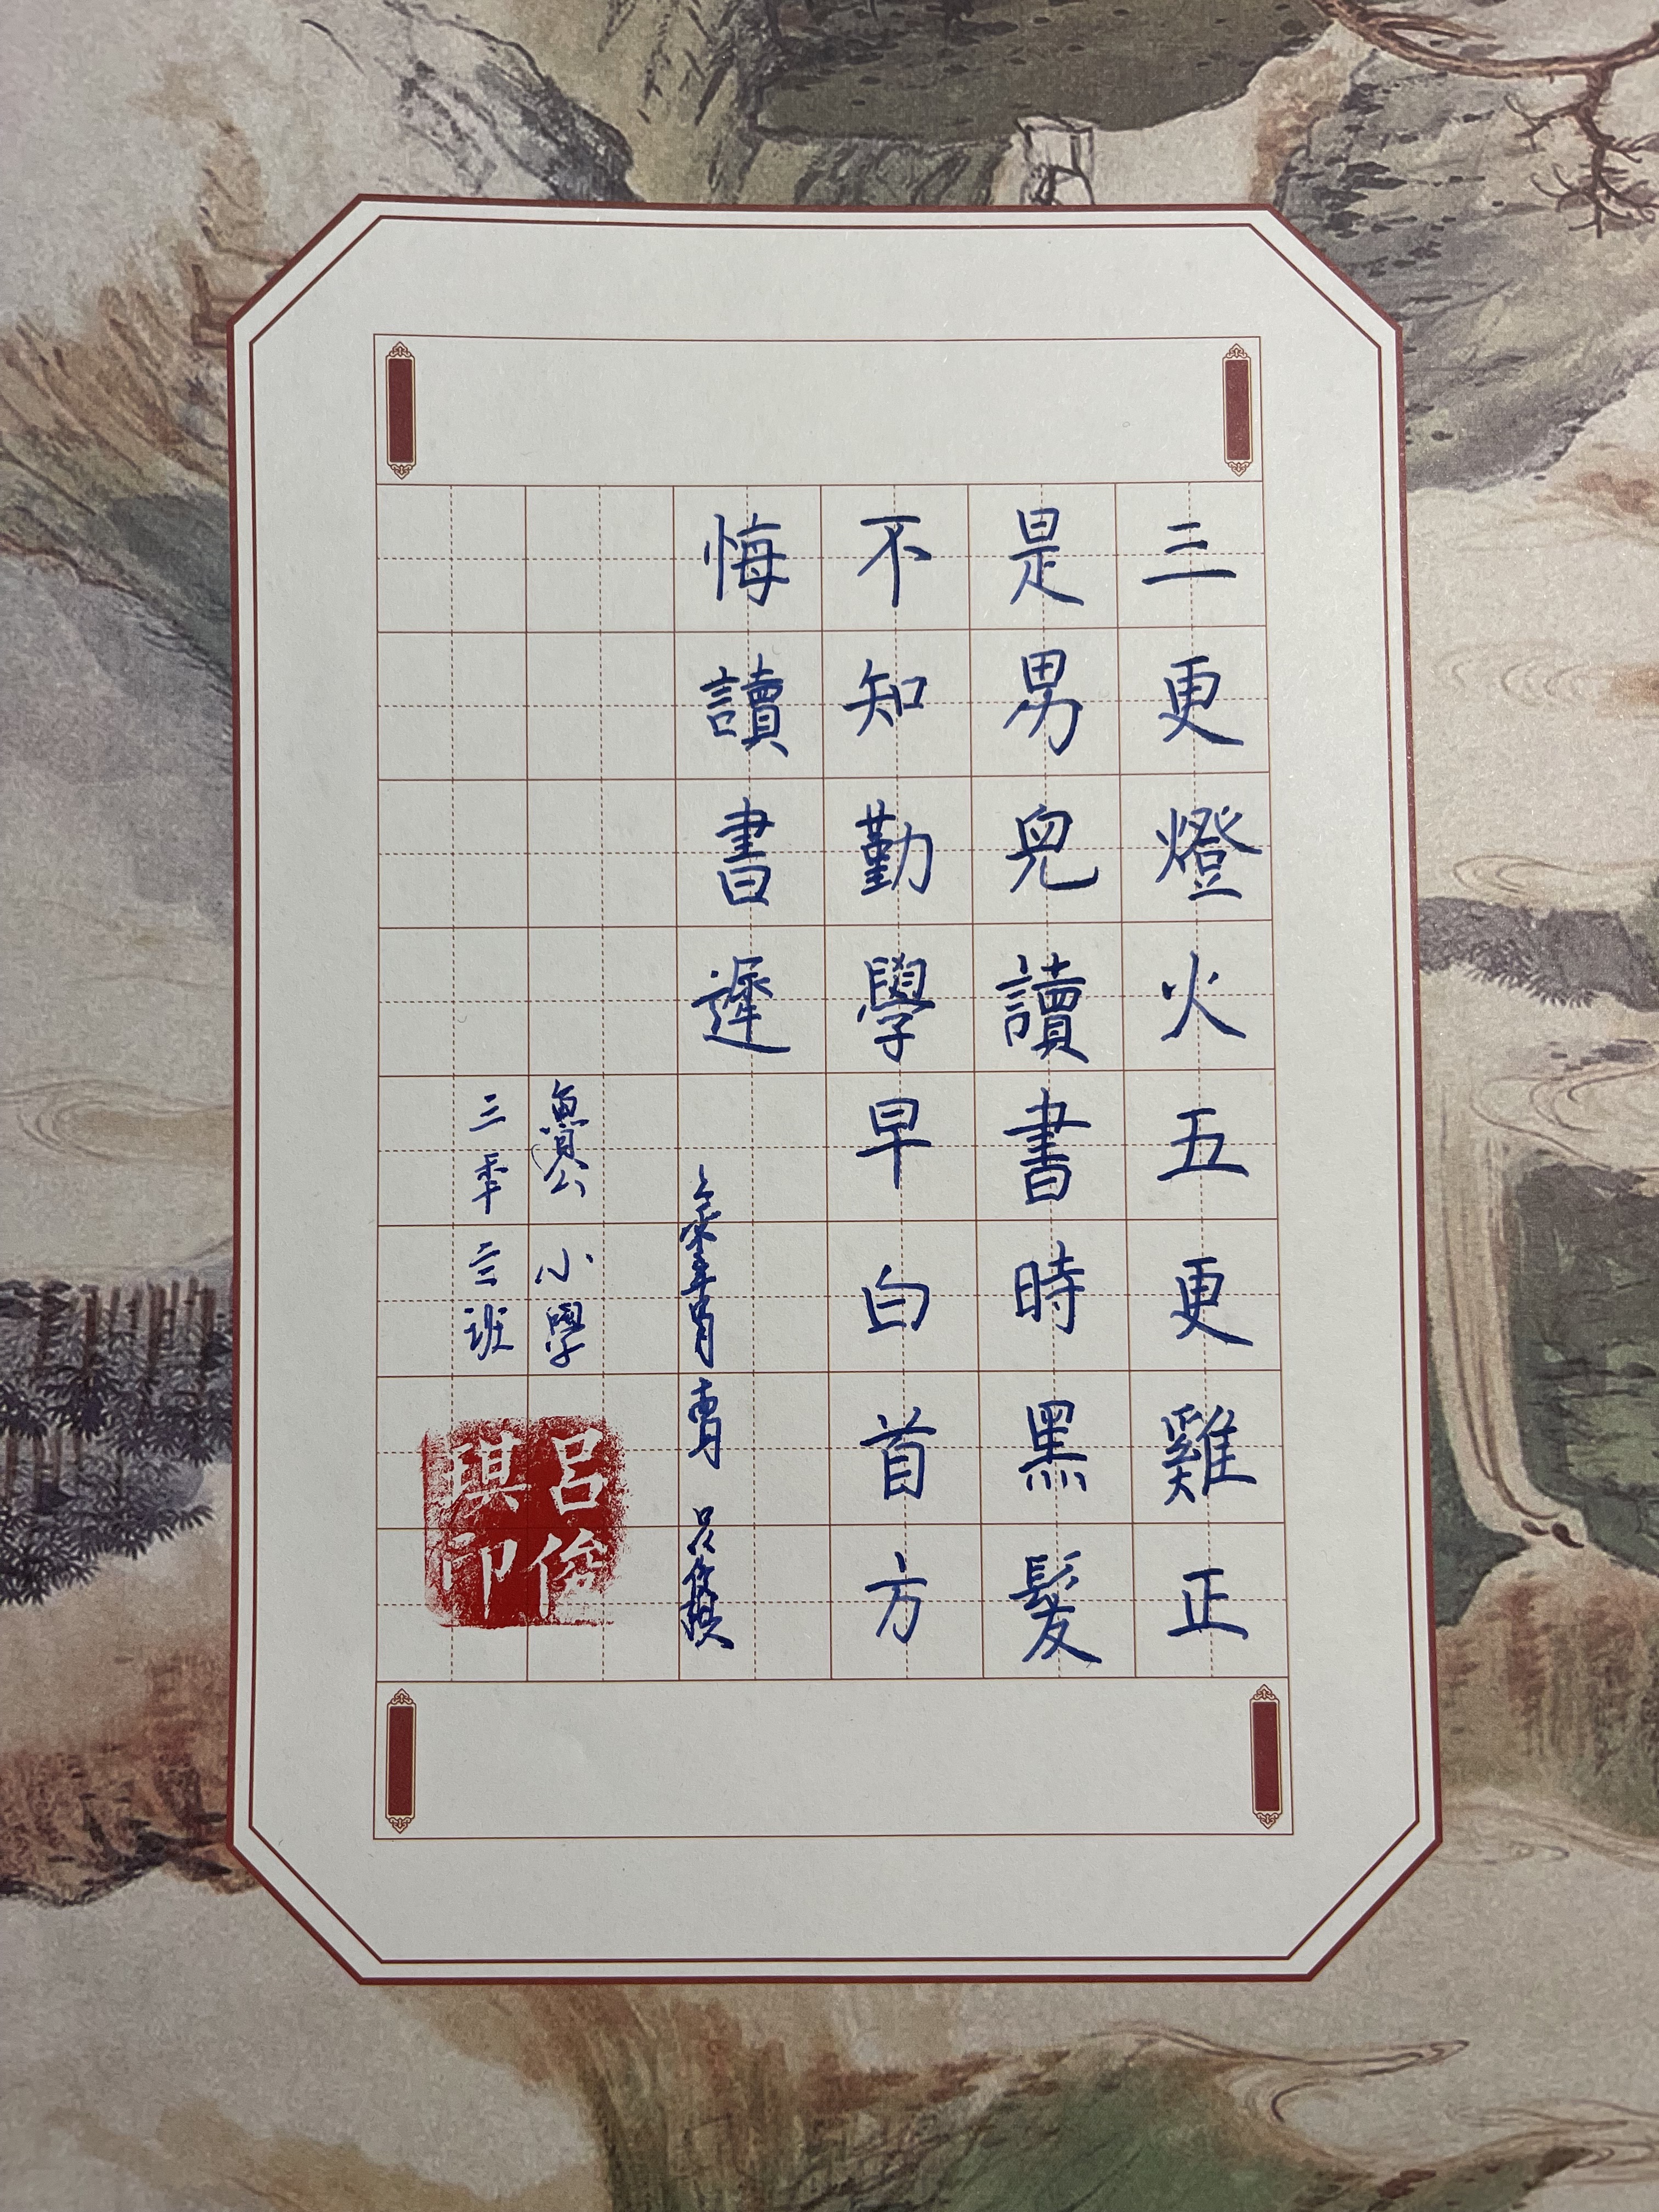 三更燈火五更雞正
是男兒讀書時黑髮
不知勤學早白首方
悔讀書遲
小學
三年三班
呂俊
琪印